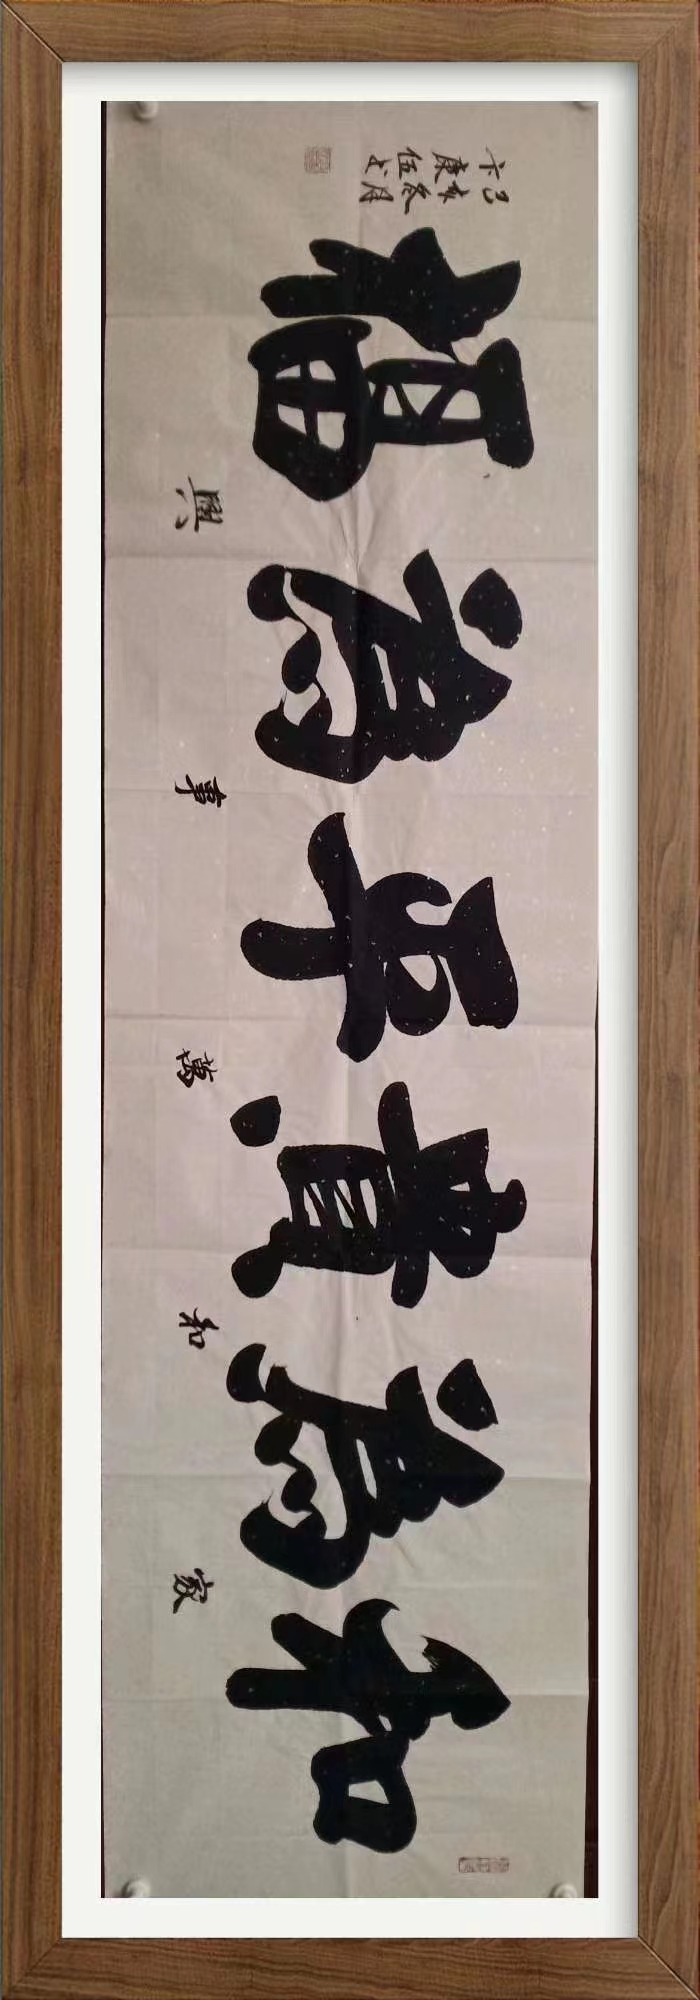 和為貴平為福
家和萬事興
己亥冬月
卞康伍书